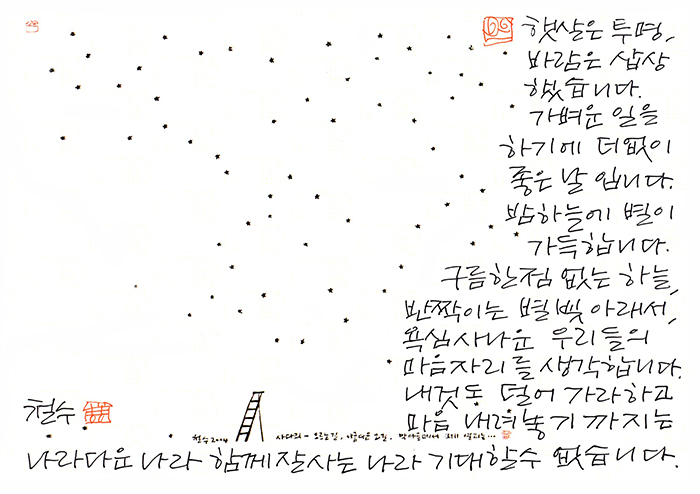 햇살은 투명,
바람은 삽상
했습니다.
가벼운 일을
하기에 더없이
좋은 날 입니다.
밤하늘에 별이
가득합니다.
구름한점 없는 하늘,
반짝이는 별빛 아래서,
욕심사나운 우리들의
마음자리를 생각합니다.
내것 동 덜어 가라하고
마음 내려놓기 까지는
나라다운 나라 함께잘사는 나라 기대할수 없습니다.
철수
철수 2004 사다리 - 오르는길,